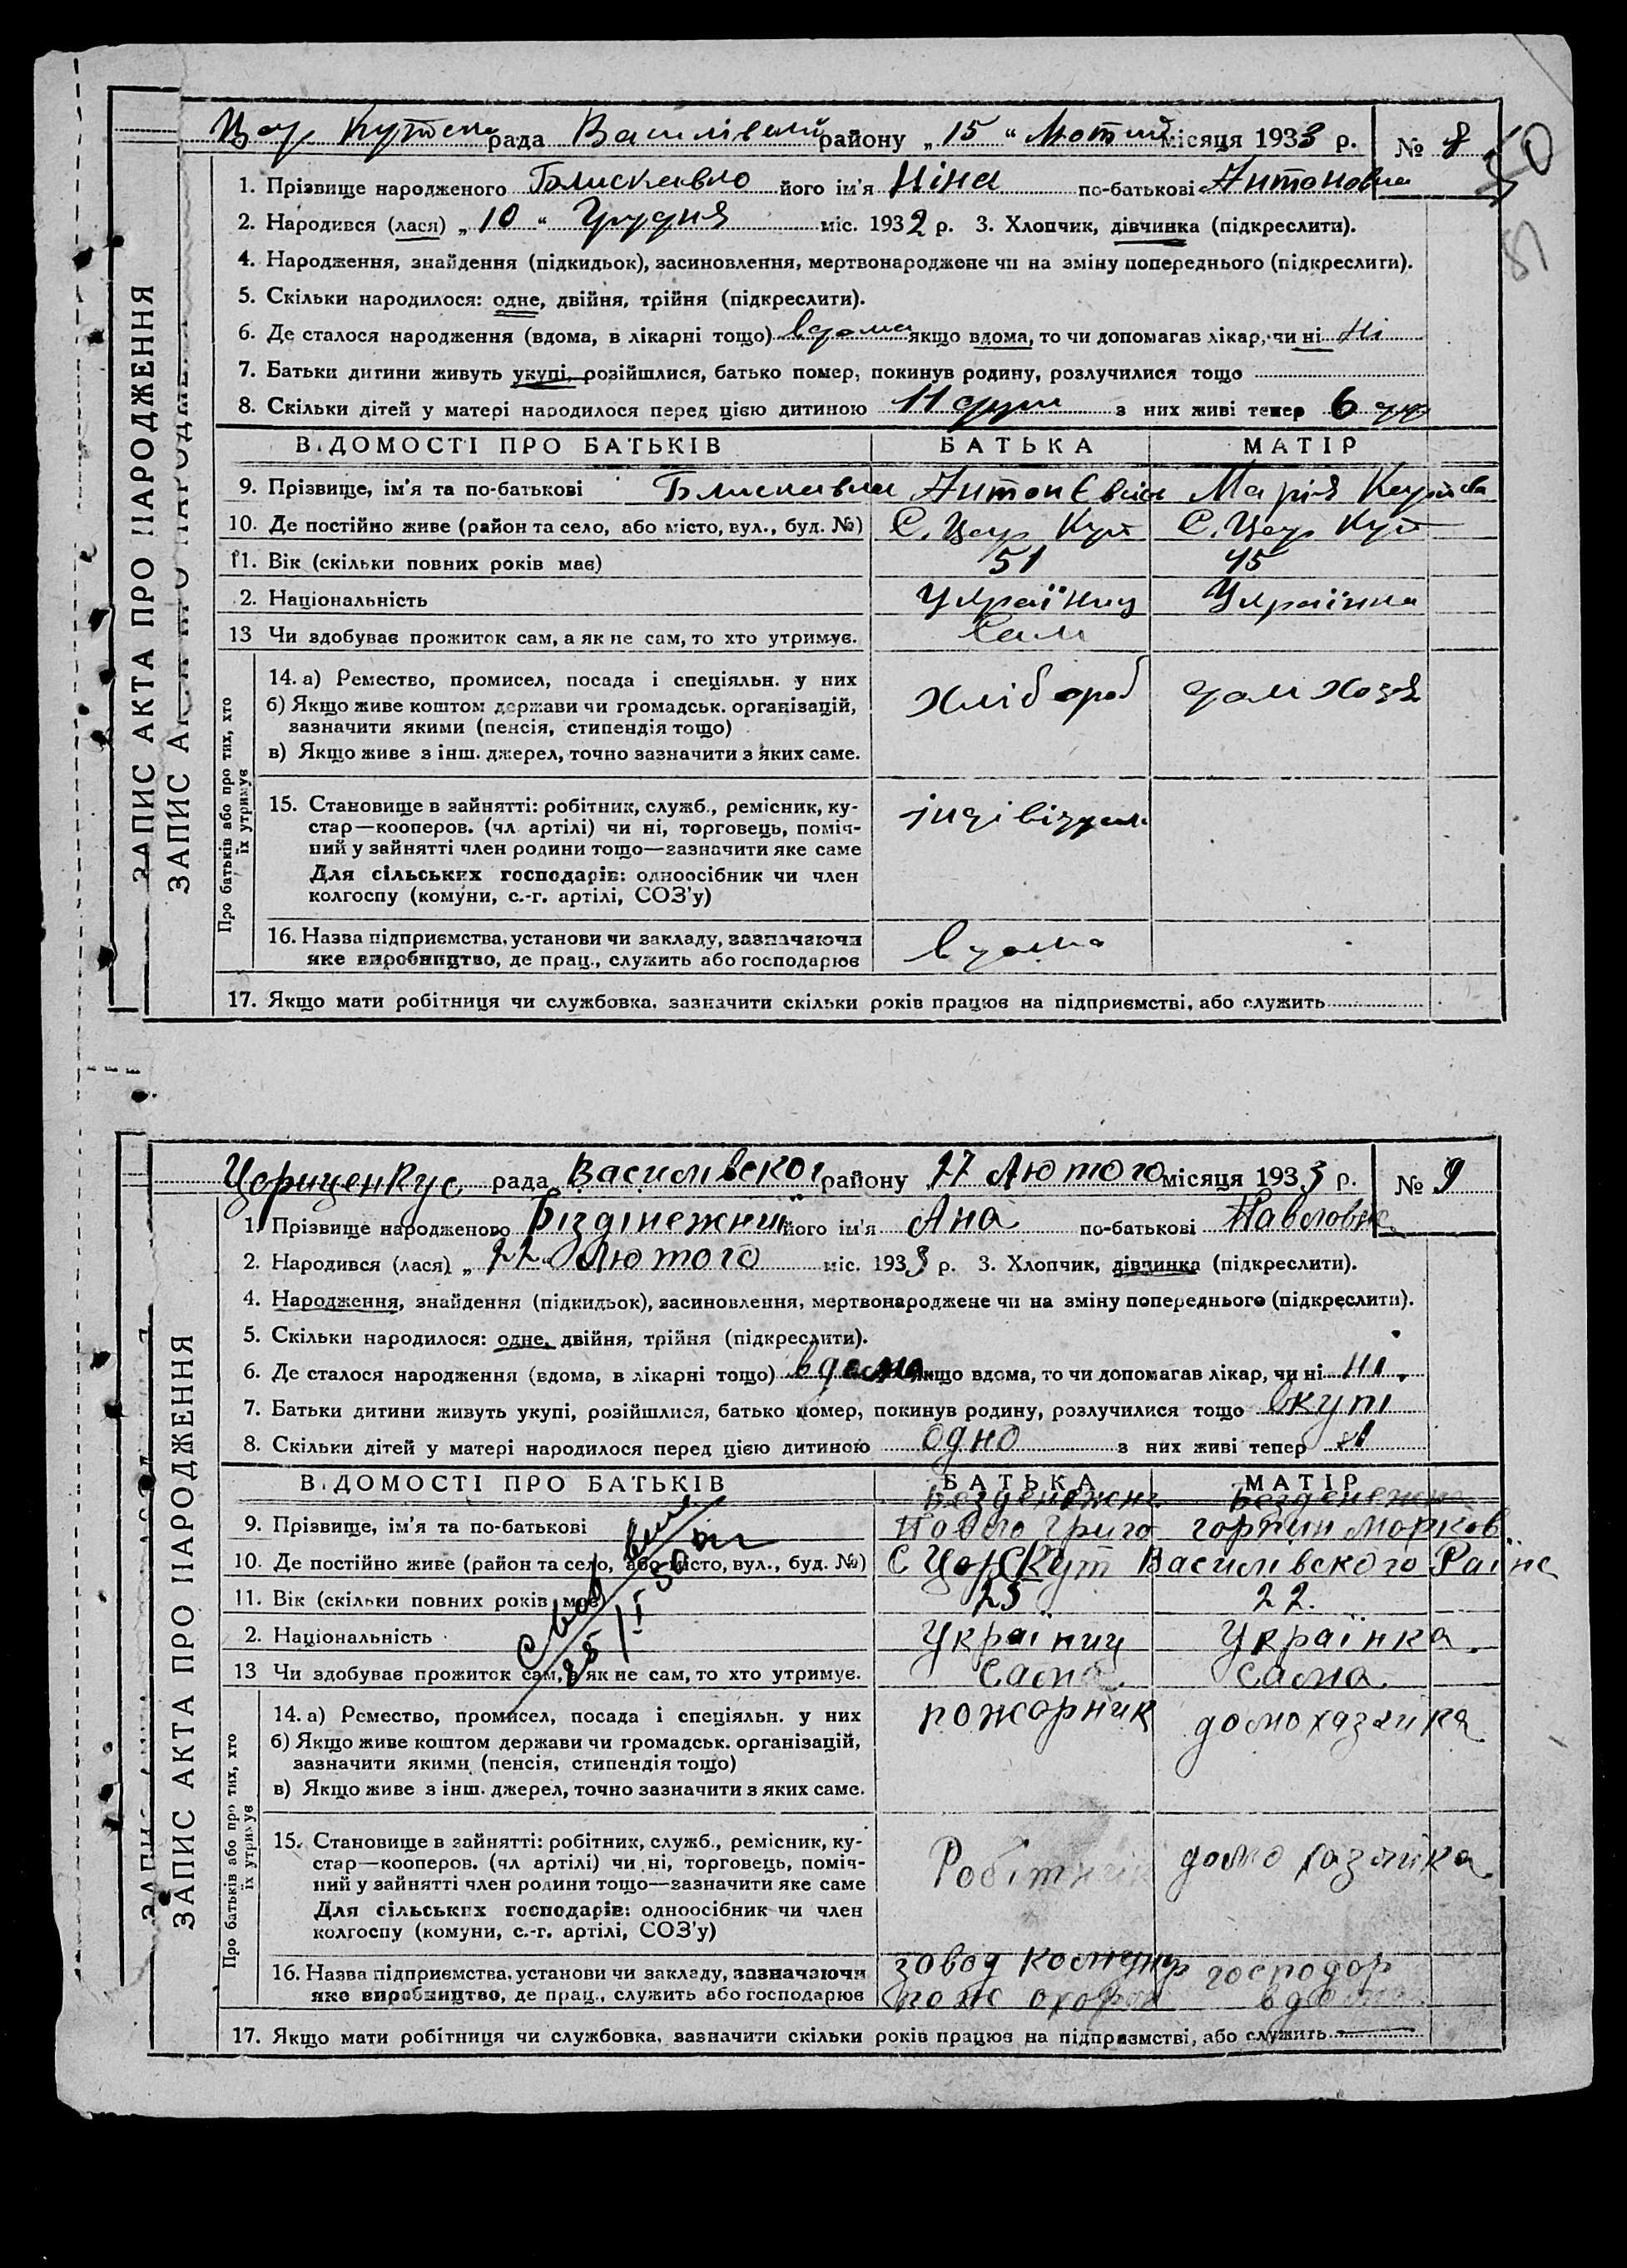 Цар Кутська рада Василівськ району „15“ Лютий місяця 1933 р. № 8
50
51
1. Прізвище народженого Блискавко його ім'я Ніна по-батькові Антоновна
2. Народився (лася) „10“ Грудня міс. 1932 р. 3. Хлопчик, дівчинка (підкреслити).
4. Народження, знайдення (підкидьок), засиновлення, мертвонароджене чи на зміну попереднього (підкреслити).
5. Скільки народилося: одне, двійня, трійня (підкреслити).
6. Де сталося народження (вдома, в лікарні тощо) вдома якщо вдома, то чи допомагав лікар, чи ні Ні
7. Батьки дитини живуть укупі, розійшлися, батько помер, покинув родину, розлучилися тощо
8. Скільки дітей у матері народилося перед цією дитиною 11 душ з них живі тепер 6
ВІДОМОСТІ ПРО БАТЬКІВ БАТЬКА МАТІР
9. Прізвище, ім'я та по-батькові Антон Марія
10. Де постійно живе (район та село, або місто, вул., буд. №) С. Цар Кут С. Цар Кут
11. Вік (скільки повних років має) 51 45
2. Національність Українец Українка
13 Чи здобував прожиток сам, а як не сам, то хто утримує. Сам
14. а) Ремество, промисел, посада і спеціяльн. у них хлібороб дом хозя
б) Якщо живе коштом держави чи громадськ. організацій,
зазначити якими (пенсія, стипендія тощо)
в) Якщо живе з інш. джерел, точно зазначити з яких саме.
15. Становище в зайнятті: робітник, служб., ремісник, ку-
стар—кооперов. (чл. артілі) чи ні, торговець, поміч-
ний у зайнятті член родини тощо—зазначити яке саме
Для сільських господарів: одноосібник чи член
колгоспу (комуни, с.-г. артілі, СОЗ'у)
16. Назва підприємства, установи чи закладу, зазначаючи вдома
яке виробництво, де прац., служить або господарює
17. Якщо мати робітниця чи службовка, зазначити скільки років працює на підприємстві, або служить
Про батьків або про тих, хто
їх утримує
ЗАПИС АКТА ПРО НАРОДЖЕННЯ
рада Василівског району 27 Лютого місяця 1933 р. № 9
1. Прізвище народженого Біздінежний його ім'я Ана по-батькові Павловна
2. Народився (лася) „22“ Лютого міс. 1933 р. 3. Хлопчик, дівчинка (підкреслити).
4. Народження, знайдення (підкидьок), засиновлення, мертвонароджене чи на зміну попереднього (підкреслити).
5. Скільки народилося: одне, двійня, трійня (підкреслити).
6. Де сталося народження (вдома, в лікарні тощо) вдома якщо вдома, то чи допомагав лікар, чи ні ні.
7. Батьки дитини живуть укупі, розійшлися, батько помер, покинув родину, розлучилися тощо вкупі
8. Скільки дітей у матері народилося перед цією дитиною одно з них живі тепер 1
ВІДОМОСТІ ПРО БАТЬКІВ БАТЬКА МАТІР
9. Прізвище, ім'я та по-батькові Павло Григо горпин Марков
10. Де постійно живе (район та село, або місто, вул., буд. №) С Цар Кут Василівского Раіне
11. Вік (скільки повних років має) 25 22.
2. Національність Україниц Українка.
13 Чи здобував прожиток сам, а як не сам, то хто утримує. Сама. Сама.
14. а) Ремество, промисел, посада і спеціяльн. у них пожарник домохазяйка
б) Якщо живе коштом держави чи громадськ. організацій,
зазначити якими (пенсія, стипендія тощо)
в) Якщо живе з інш. джерел, точно зазначити з яких саме.
15. Становище в зайнятті: робітник, служб., ремісник, ку- Робітник домо хазяйка
стар—кооперов. (чл артілі) чи ні, торговець, поміч-
ний у зайнятті член родини тощо—зазначити яке саме
Для сільських господарів: одноосібник чи член
колгоспу (комуни, с.-г. артілі, СОЗ'у)
16. Назва підприємства, установи чи закладу, зазначаючи завод господар
яке виробництво, де прац., служить або господарює пож охорон вдома
17. Якщо мати робітниця чи службовка, зазначити скільки років працює на підприємстві, або служить
Про батьків або про тих, хто
їх утримує
ЗАПИС АКТА ПРО НАРОДЖЕННЯ